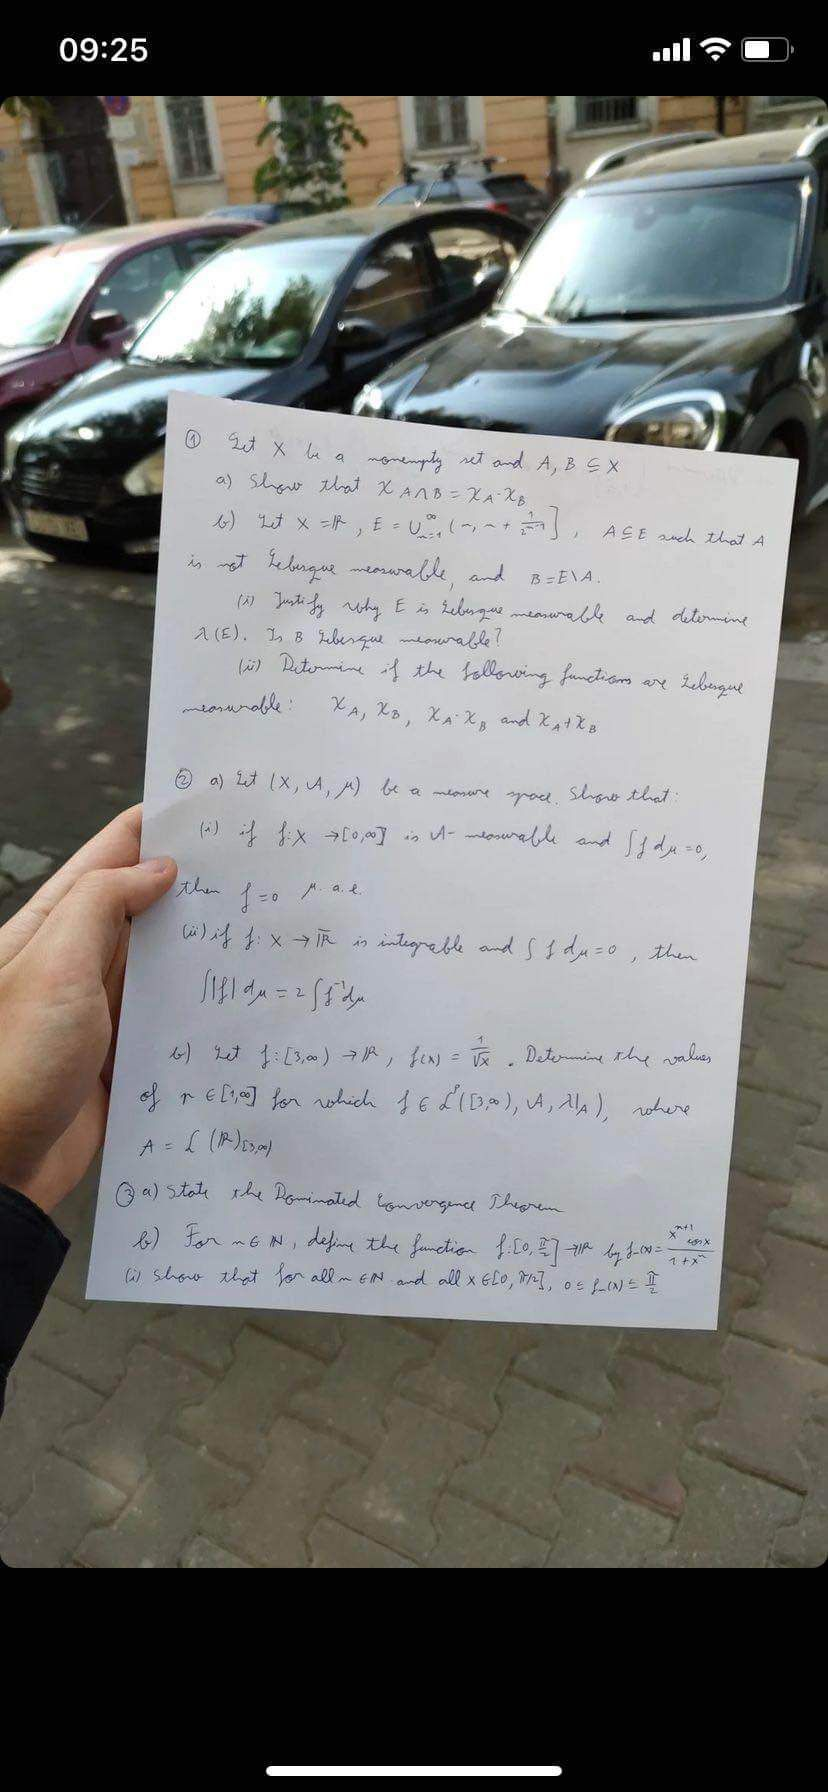 09:25
① Let X be a nonempty set and A, B ⊆ X
a) Show that χ A∩B = χ_A · χ_B
b) Let X = ℝ, E = ∪_{n=1}^∞ (n, n + 1/2^{n-1}], A ⊆ E such that A
is not Lebesgue measurable, and B = E\A.
(i) Justify why E is Lebesgue measurable and determine
λ(E). Is B Lebesgue measurable?
(ii) Determine if the following functions are Lebesgue
measurable: χ_A, χ_B, χ_A · χ_B and χ_A + χ_B
② a) Let (X, A, μ) be a measure space. Show that:
(i) if f: X → [0,∞] is A-measurable and ∫f dμ = 0,
then f = 0 μ. a.e.
(ii) if f: X → ℝ̅ is integrable and ∫ f dμ = 0, then
∫|f| dμ = 2 ∫ f⁻ dμ
b) Let f: [3,∞) → ℝ, f(x) = 1/√x. Determine the values
of p ∈ [1,∞] for which f ∈ L^p([3,∞), A, λ|_A), where
A = L(ℝ)_[3,∞)
③ a) State the Dominated Convergence Theorem
b) For n ∈ ℕ, define the function f: [0, π/2] → ℝ by f_n(x) = x^{n+1} cos x / 1 + x^n
(i) Show that for all n ∈ ℕ and all x ∈ [0, π/2], 0 ≤ f_n(x) ≤ π/2